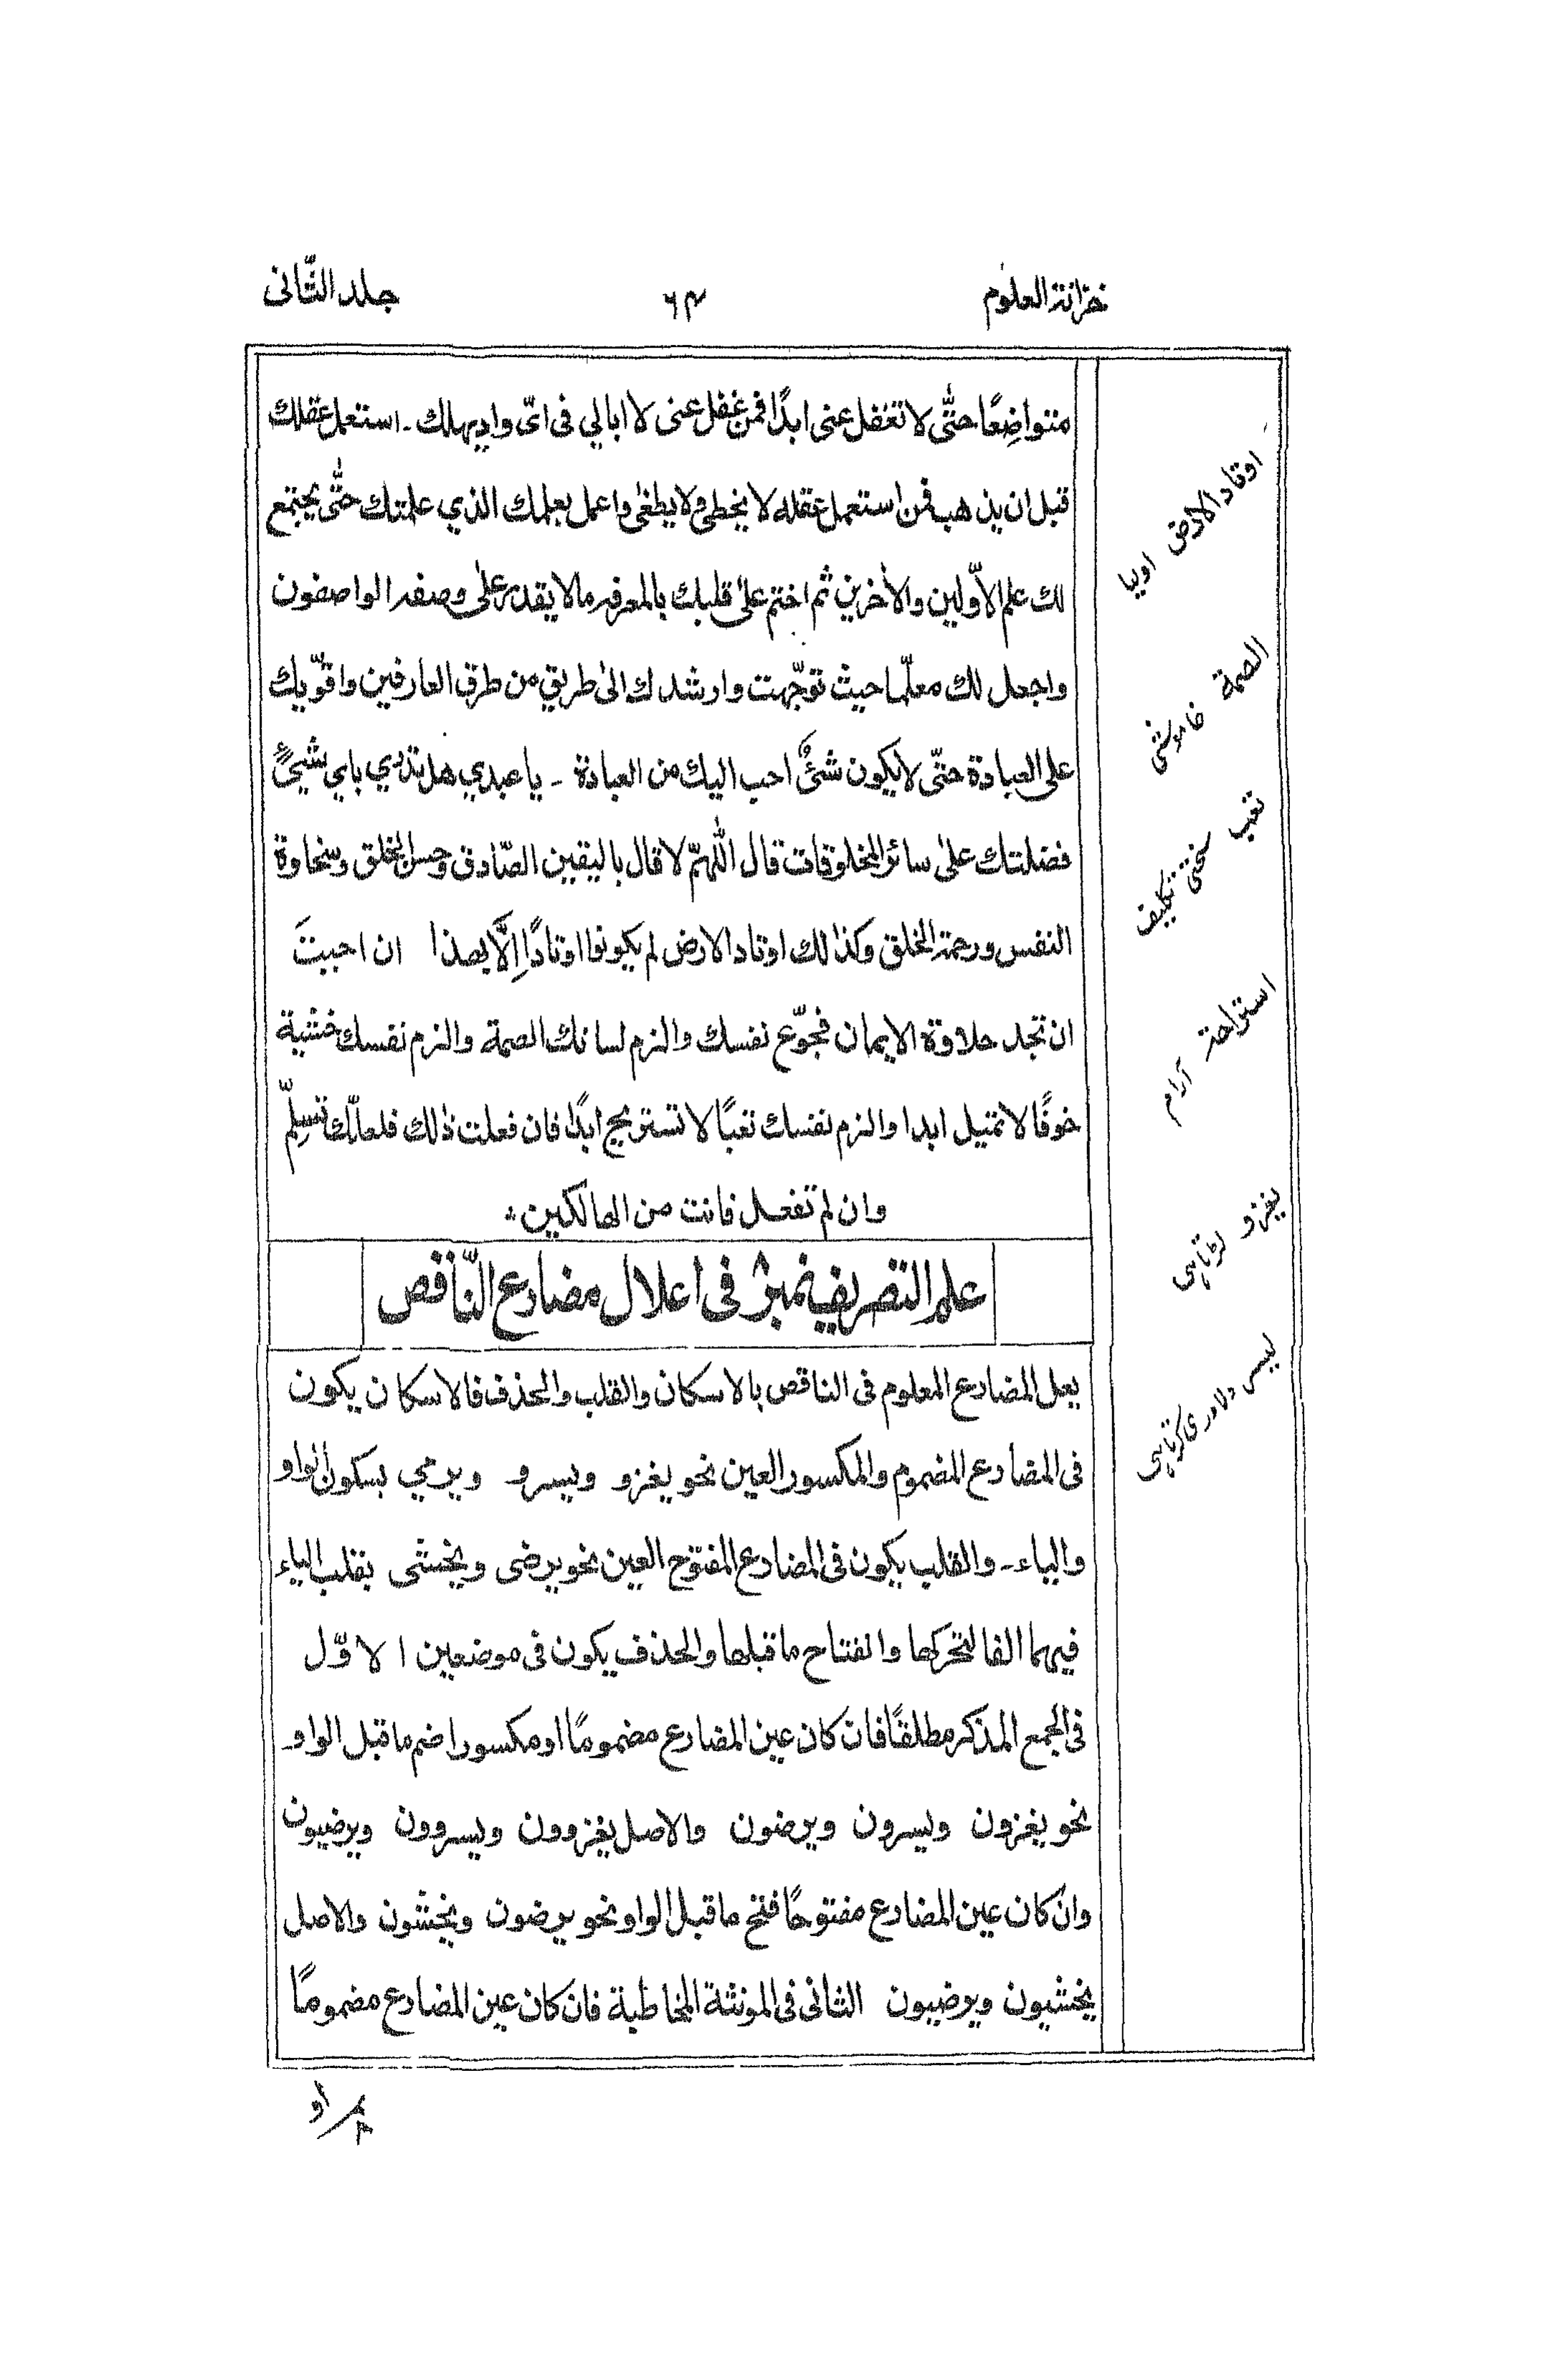 خزانة العلوم
٦٤
جلد الثّانی
متواضِعًا حتّٰی لا تغفل عنی ابدًا فمن غفل عنی لا ابالي فی ایّ وادٍ یهلك ـ استعمل عقلك
قبل ان یذهب فمن استعمل عقله لا یخطی ولا یطغٰی واعمل بعلمك الذي علمتك حتّٰی یجتمع
لك علم الاوّلین والاٰخرین ثم اختم علٰی قلبك بالمعرفه مالا یقدر علی وصفه الواصفون
واجعل لك معلّما حیث توجّهت وارشدك الیٰ طریق من طرق العارفین واقوّیك
علی العبادة حتّی لا یکون شئٌ احب الیك من العبادة ـ یا عبدي هل تدري باي شیئٍ
فضلتك علیٰ سائر المخلوقات قال اللّٰهمّ لا قال بالیقین الصّادق وحسن الخلق وسخاوة
النفس ورحمة الخلق وکذالك اوتاد الارض لم یکونوا اوتادًا اِلَّا بهذا ان احببتَ
ان تجد حلاوة الایمان فجوّع نفسك والزم لسانك الصمة والزم نفسك خشیة
خوفًا لا تمتیل ابدا والزم نفسك تعبًا لا تستریح ابدًا فان فعلت ذٰلك فلعلّك تسلِّم
وان لم تفعل فانت من الهالکین
علم التصریف نمبر فی اعلال مضارع النّاقص
یعل المضارع المعلوم فی الناقص بالاسکان والقلب والحذف فالاسکان یکون
فی المضارع المضموم والمکسور العین نحو یغزو ویسرو ویرمي بسکون الواو
والیاء ـ والقلب یکون فی المضارع المفتوح العین نحو یرضی ویخشی بقلب الیاء
فیهما الفا لتحرکها وانفتاح ما قبلها والحذف یکون فی موضعین الاوّل
فی الجمع المذکر مطلقًا فان کان عین المضارع مضمومًا او مکسورا ضم ما قبل الواو
نحو یغزون ویسرون ویرضون والاصل یغزوون ویسروون ویرضیون
وان کان عین المضارع مفتوحًا فتح ما قبل الواو نحو یرضون ویخشون والاصل
یخشیون ویرضیون الثانی فی المونثة المخاطبة فان کان عین المضارع مضمومًا
اوتاد الارض اولیا
الصمة خاموشی
تعب سختی تکلیف
استراحة آرام
یغزو لڑتاہی
یسر دلاوری کرتاہی